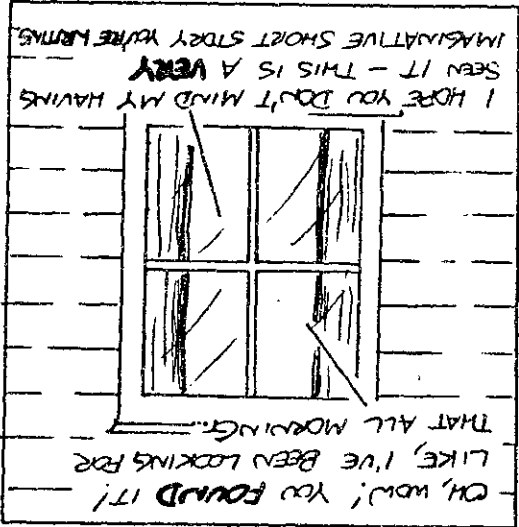 OH, WOW! YOU FOUND IT!
LIKE, I'VE BEEN LOOKING FOR
THAT ALL MORNING...
I HOPE YOU DON'T MIND MY HAVING
SEEN IT - THIS IS A VERY
IMAGINATIVE SHORT STORY YOU'RE WRITING.